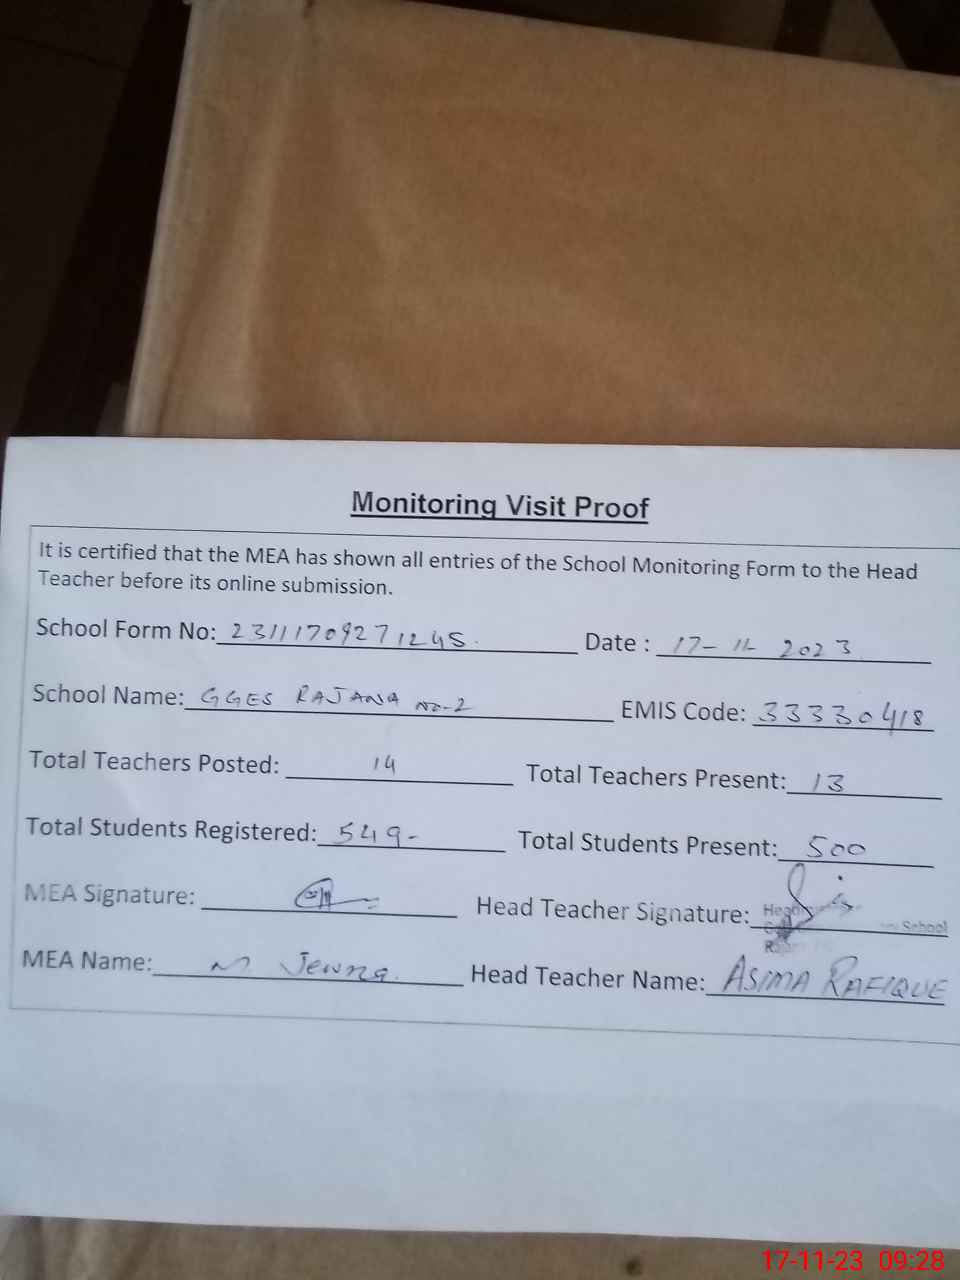 Monitoring Visit Proof
It is certified that the MEA has shown all entries of the School Monitoring Form to the Head
Teacher before its online submission.
School Form No: 23111709271245. Date : 17-11-2023.
School Name: GGES RAJANA No-2 EMIS Code: 33330418
Total Teachers Posted: 14 Total Teachers Present: 13
Total Students Registered: 549- Total Students Present: 500
MEA Signature: Head Teacher Signature:
Head School
MEA Name: M Head Teacher Name: ASIMA RAFIQUE
17-11-23 09:28